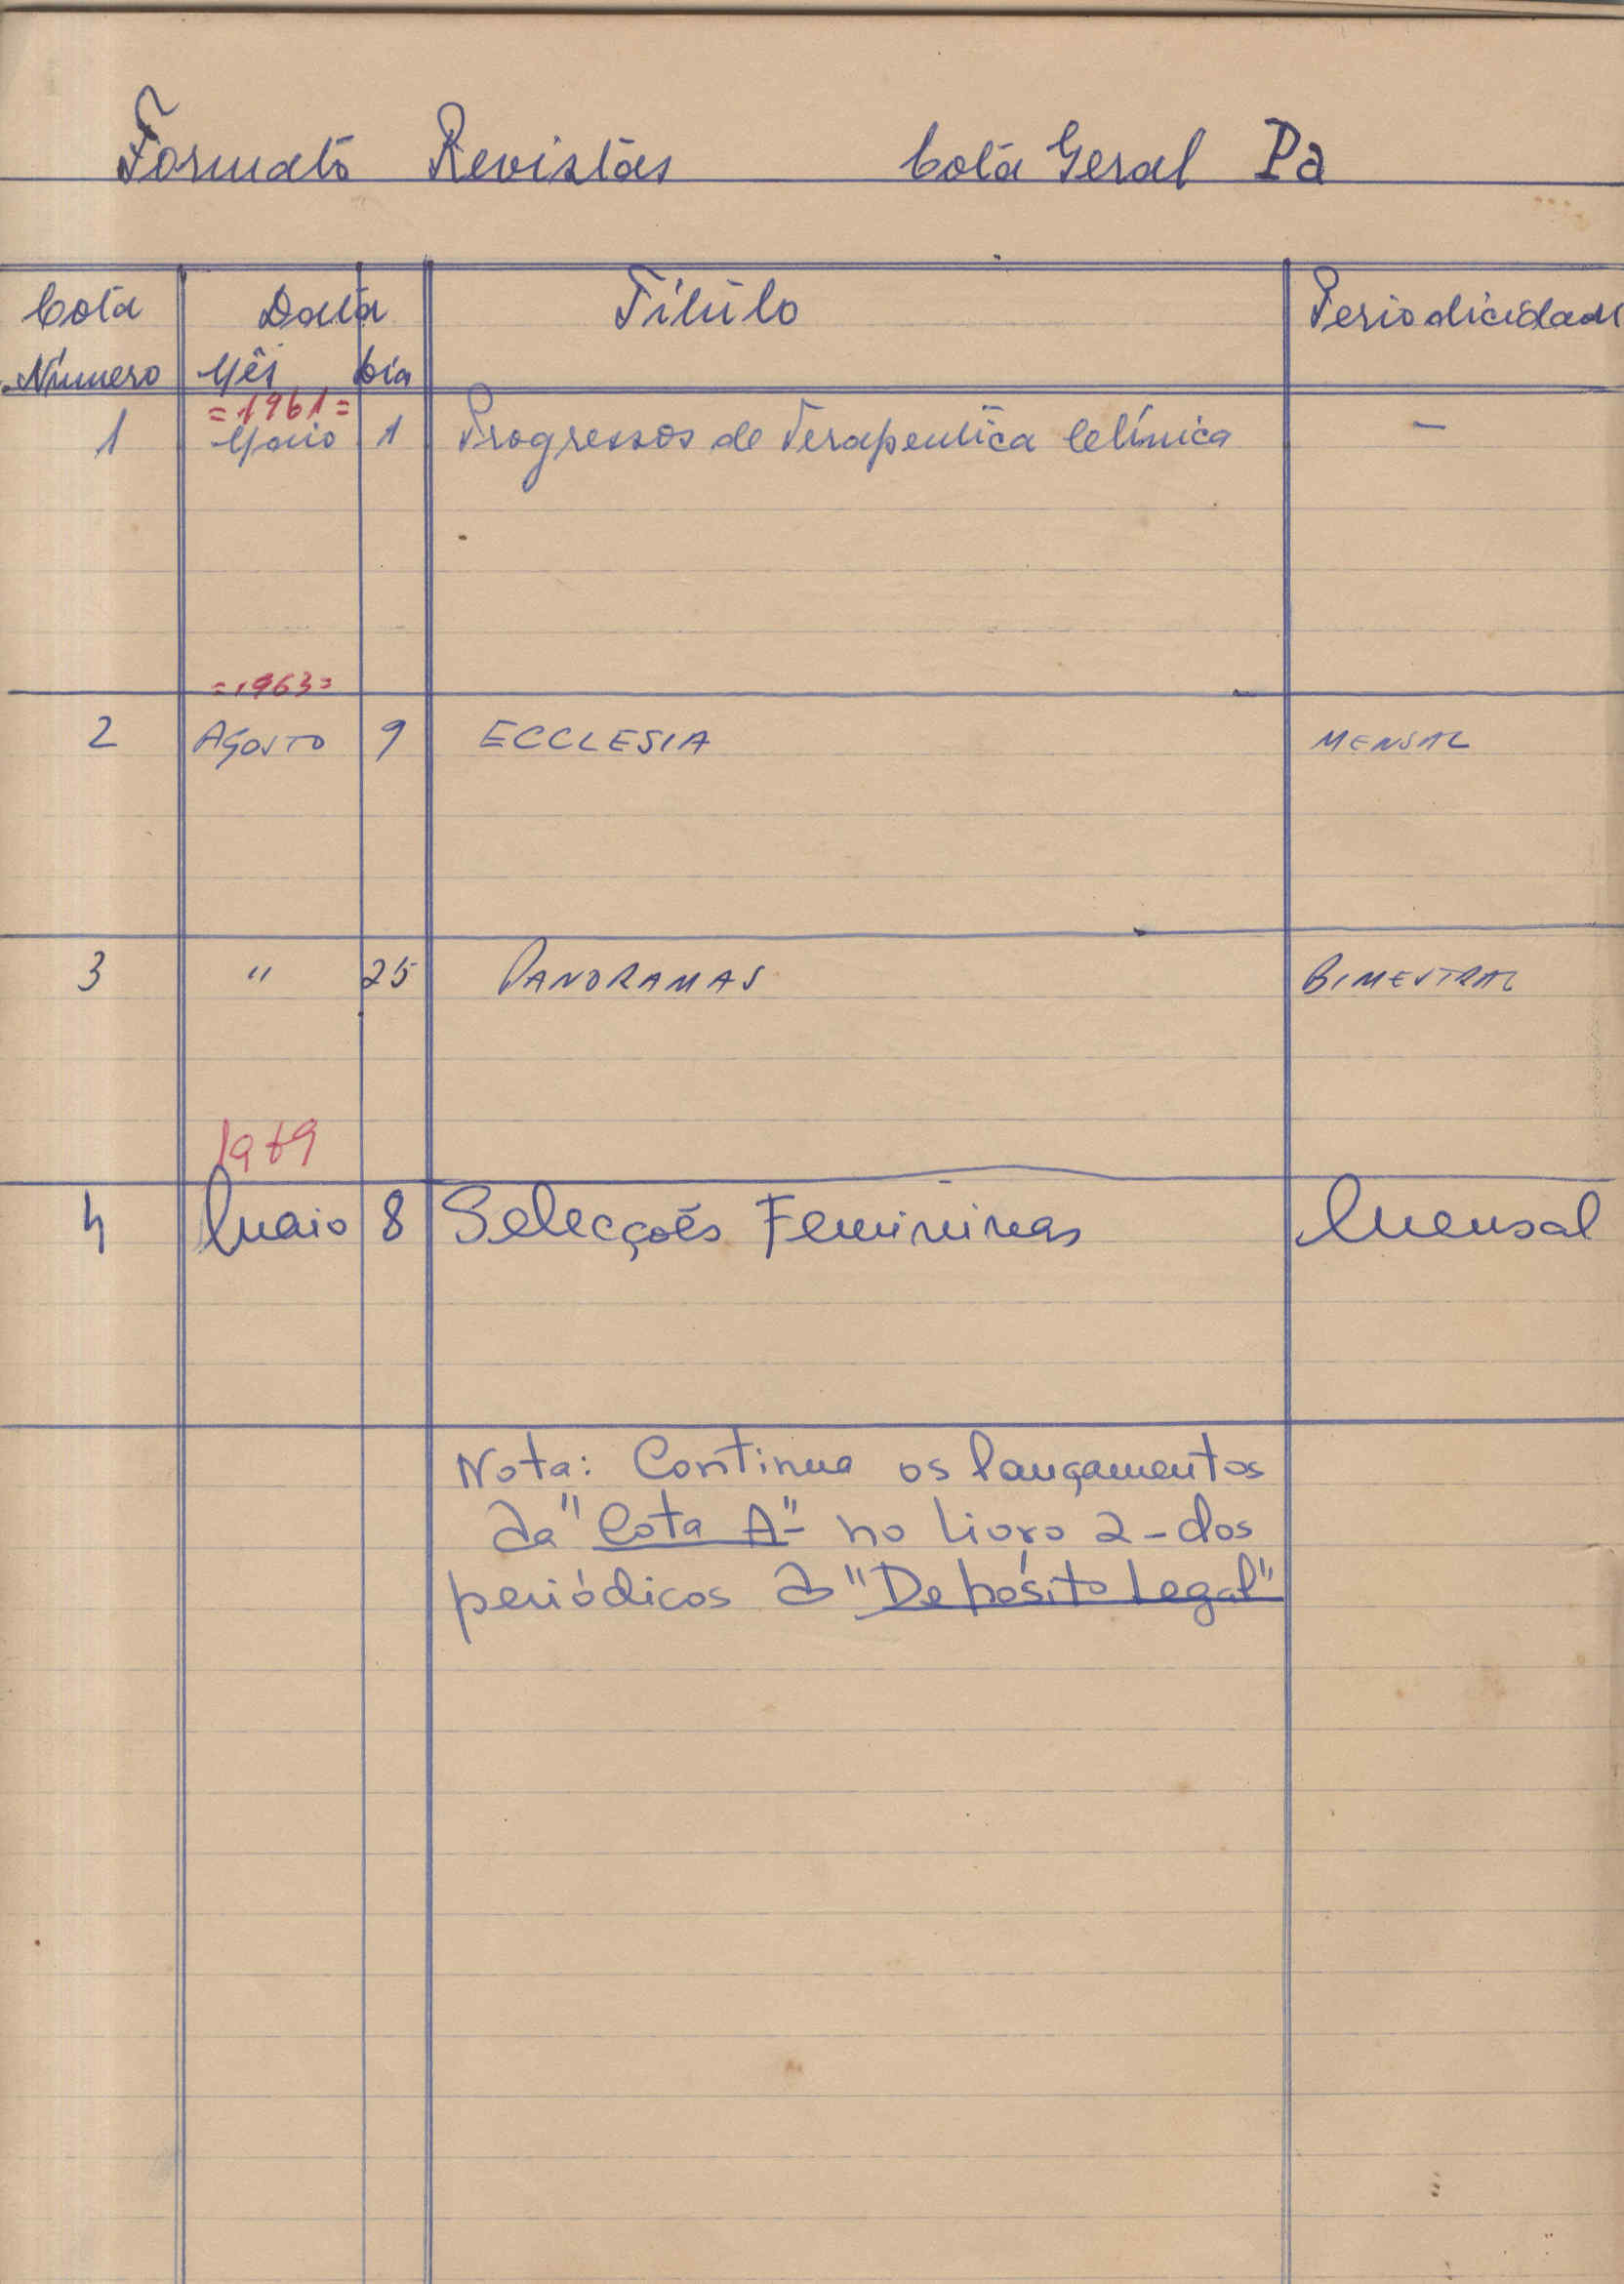 Formato Revistas Cota Geral Pa
Cota Data Título Periodicidade
Número Mês Dia
=1961=
1 Maio 1 Progressos de Terapeutica Clínica —
=1963=
2 AGOSTO 9 ECCLESIA MENSAL
3 " 25 PANORAMAS BIMESTRAL
1969
4 Maio 8 Selecções Femininas Mensal
Nota: Continua os lançamentos
da "Cota A" no Livro 2-dos
periódicos do "Depósito Legal"